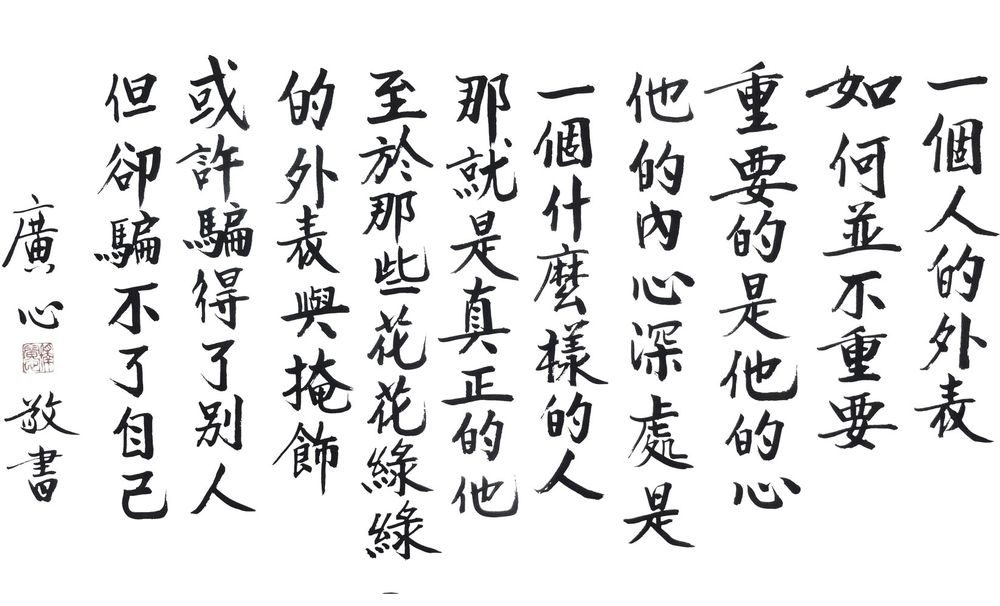 一個人的外表
如何並不重要
重要的是他的心
他的內心深處是
一個什麼樣的人
那就是真正的他
至於那些花花綠綠
的外表與掩飾
或許騙得了別人
但卻騙不了自己
廣心 敬書